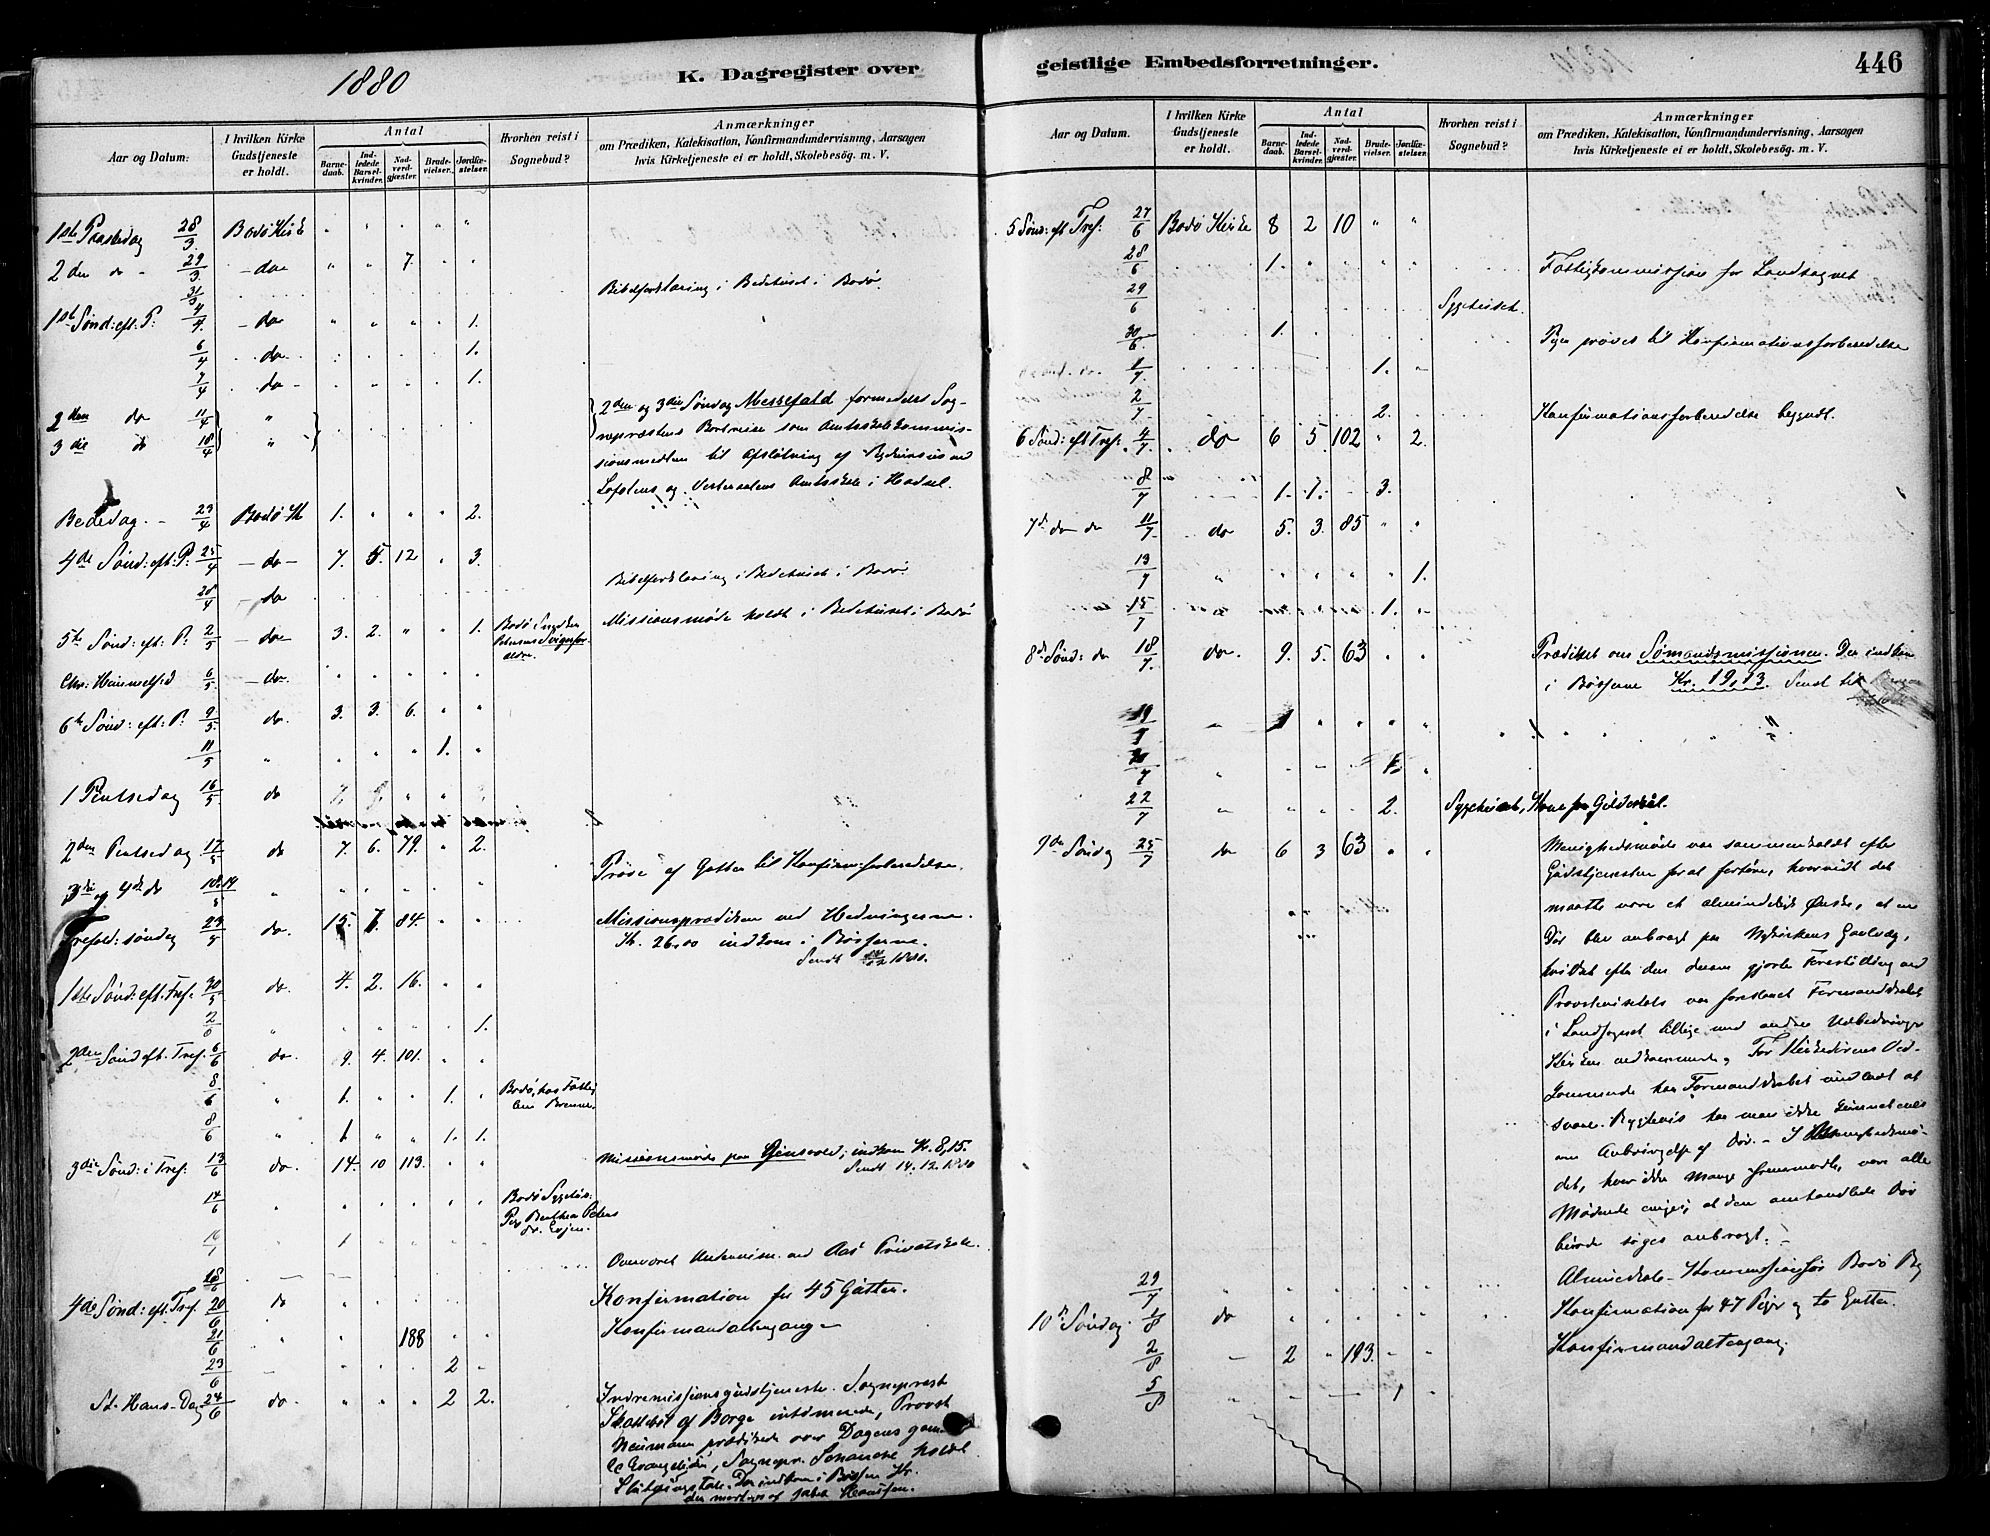 1880
K. Dagregister over
Aar og Datum.
I hvilken Kirke Gudstjeneste er holdt.
Antal
Barnedaab.
Indledede Barselkvinder.
Nadverdgjæster.
Brudevielser.
Jordfæstelser.
Hvorhen reist i Sognebud?
Anmærkninger
om Prædiken, Katekisation, Konfirmandundervisning, Aarsagen
hvis Kirketjeneste ei er holdt, Skolebesøg. m. V.
1ste Paaskedag 28/3 Bodø Kirke " " " " "
2den do - 29/3 - do " " 7. " "
31/3 Bibelforklaring i Bedehuset i Bodø.
1ste Sønd: eft. P: 4/4 - do " " " " 1.
6/4 do 1.
7/4 do 1.
2den do 11/4 " 2den og 3die Søndag Messefald formedelst Sog-
3die do 18/4 " nepræstens Bortreise som Amtsskolekommis-
sionsmedlem til Afslutning af
Lofotens og Vesteraalens Amtsskole i Hadsel.
Bededag. - 23/4 Bodø K 1. " " " 2.
4de Sønd: eft: P: 25/4 - do - 7. 5. 12 " 3.
28/4 - do Bibelforklaring i Bedehuset i Bodø.
5te Sønd: eft: P: 2/5 - do 3. 2. " " 1. Bodø Missionsmøde holdt i Bedehuset i Bodø
Chr: Himmelf 6/5 - do " " " " "
6te Sønd: eft: P: 9/5 do. 3. 3. 6. " "
11/5 " " " " 1. "
1 Pintsedag 16/5 do
2den Pintsedag 17/5 do 7. 6. 79. " 2.
3die og 4de do 18-19/5 " " " " " " Prøve af Gutter til Konfirm:forberedelse.
Trefold: søndag 23/5 do. 15. 7. 84. " " Missionsprædiken ved Hedningerne.
Kr. 26.00 indkom i Bøsserne.
Sendt 1880.
1ste Sønd: eft. Tref: 30/5 do. 4. 2. 16. " "
2/6 " " " " " 1.
2den Sønd eft. Tref. 6/6 do. 9. 4. 101. " "
8/6 " 1. " " 1. " Bodø, hos Fattig
8/6 " 1 " " 1. 1.
3die Sønd: i Tref. 13/6 do. 14. 10 113. " " Missionsmøde paa ; indkom Kr. 8,15.
Sendt 14. 12. 1880
14/6 " " " " " " Bodø Sygehus:
Pige Berthea Peders
dr. Evjen.
16/ 1 Overværet Underviisn. ved Aas' Privatskole.
18/6
4de Sønd: eft. Tref 20/6 do " " Konfirmation for 45 Gutter.
21/6 " " " 188 " " Konfirmandaltergang
23/6 " " 2 "
St. Hans-Dag 24/6 do. " " " 2 2. Indremissionsgudstjeneste. Sogneprest
af Borge intimerede, Provst
Neumann prædikede over Dagens gam-
le Evangelium, Sognepr. holdt
Der indkom i Bøssen Kr.
geistlige Embedsforretninger.
446
Aar og Datum.
I hvilken Kirke Gudstjeneste er holdt.
Antal
Barnedaab.
Indledede Barselkvinder.
Nadverdgjæster.
Brudevielser.
Jordfæstelser.
Hvorhen reist i Sognebud?
Anmærkninger
om Prædiken, Katekisation, Konfirmandundervisning, Aarsagen
hvis Kirketjeneste ei er holdt, Skolebesøg. m. V.
5 Sønd: eft Tref: 27/6 Bodø Kirke 8 2 10 " "
28/6 1. Fattigkommission for Landsognet
29/6 Sygehuset.
30/6 1. Piger prøves til Konfirmationsforberedelse
1/7. 1.
2/7. 2. Konfirmationsforberedelse begyndt.
6 Sønd: eft Tref: 4/7. do 6 5. 102 " 2.
8/7 1. 1. 3.
7de do do 11/7. do 5. 3. 85 " "
13/7 " " " " " 1.
15/7 1.
8de Sønd: do 18/7. do. 9. 5. 63 " " Prædiket om Sømandsmissionen. Der indkom
i Bøsserne Kr. 19,13. Sendt til
19/7 1
20/7 1
22/7 " " " 2. Sygehuset, Kone fra Gildeskål.
9de Søndag 25/7 do 6 3 63 " " Menighedsmøde var sammenkaldt efter
Gudstjenesten for at forføre, hvorvidt det
maatte være et almindeligt Ønske, at en
Dør blev anbragt paa Kirkens Gavlvæg,
hvilket efter den derom gjorte Forestilling ved
Provstevisitats var foreslaaet Formandskabet
i Landsognet tillige med andre Udbedringer
Kirken vedkommende, For Kirkedørens Ved-
kommende har Formandskabet undladt at
svare. har man ikke
om Anbringelse af Dør. - I Menighedsmø-
det, hvor ikke Mange fremmødte, vare alle
Mødende enige, at den omhandlede Dør
burde søges anbragt. -
29/7 Almueskole-Kommission for Bodø By
10de Søndag. 1/8 do " " " " " Konfirmation for 47 Piger og to Gutter.
2/8 2 " 193. " " Konfirmandaltergang.
5/8 1